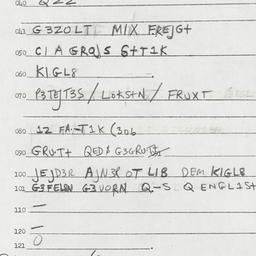 040
041 G3ZOLT MIX FREJGT
050 C1A GROJS GTT1K
060 K1GL8
070 P3TEJT3S / LOKSTN / FRUXT
080 12 FA-T1K (306
090 GRUTT QED8 G3GRUTT
100 JEJD3R AJN3X OT LIB DEM K1GL8
101 G3FELDN G3VORN Q-S Q ENGL1ST
110 —
120 —
121 0